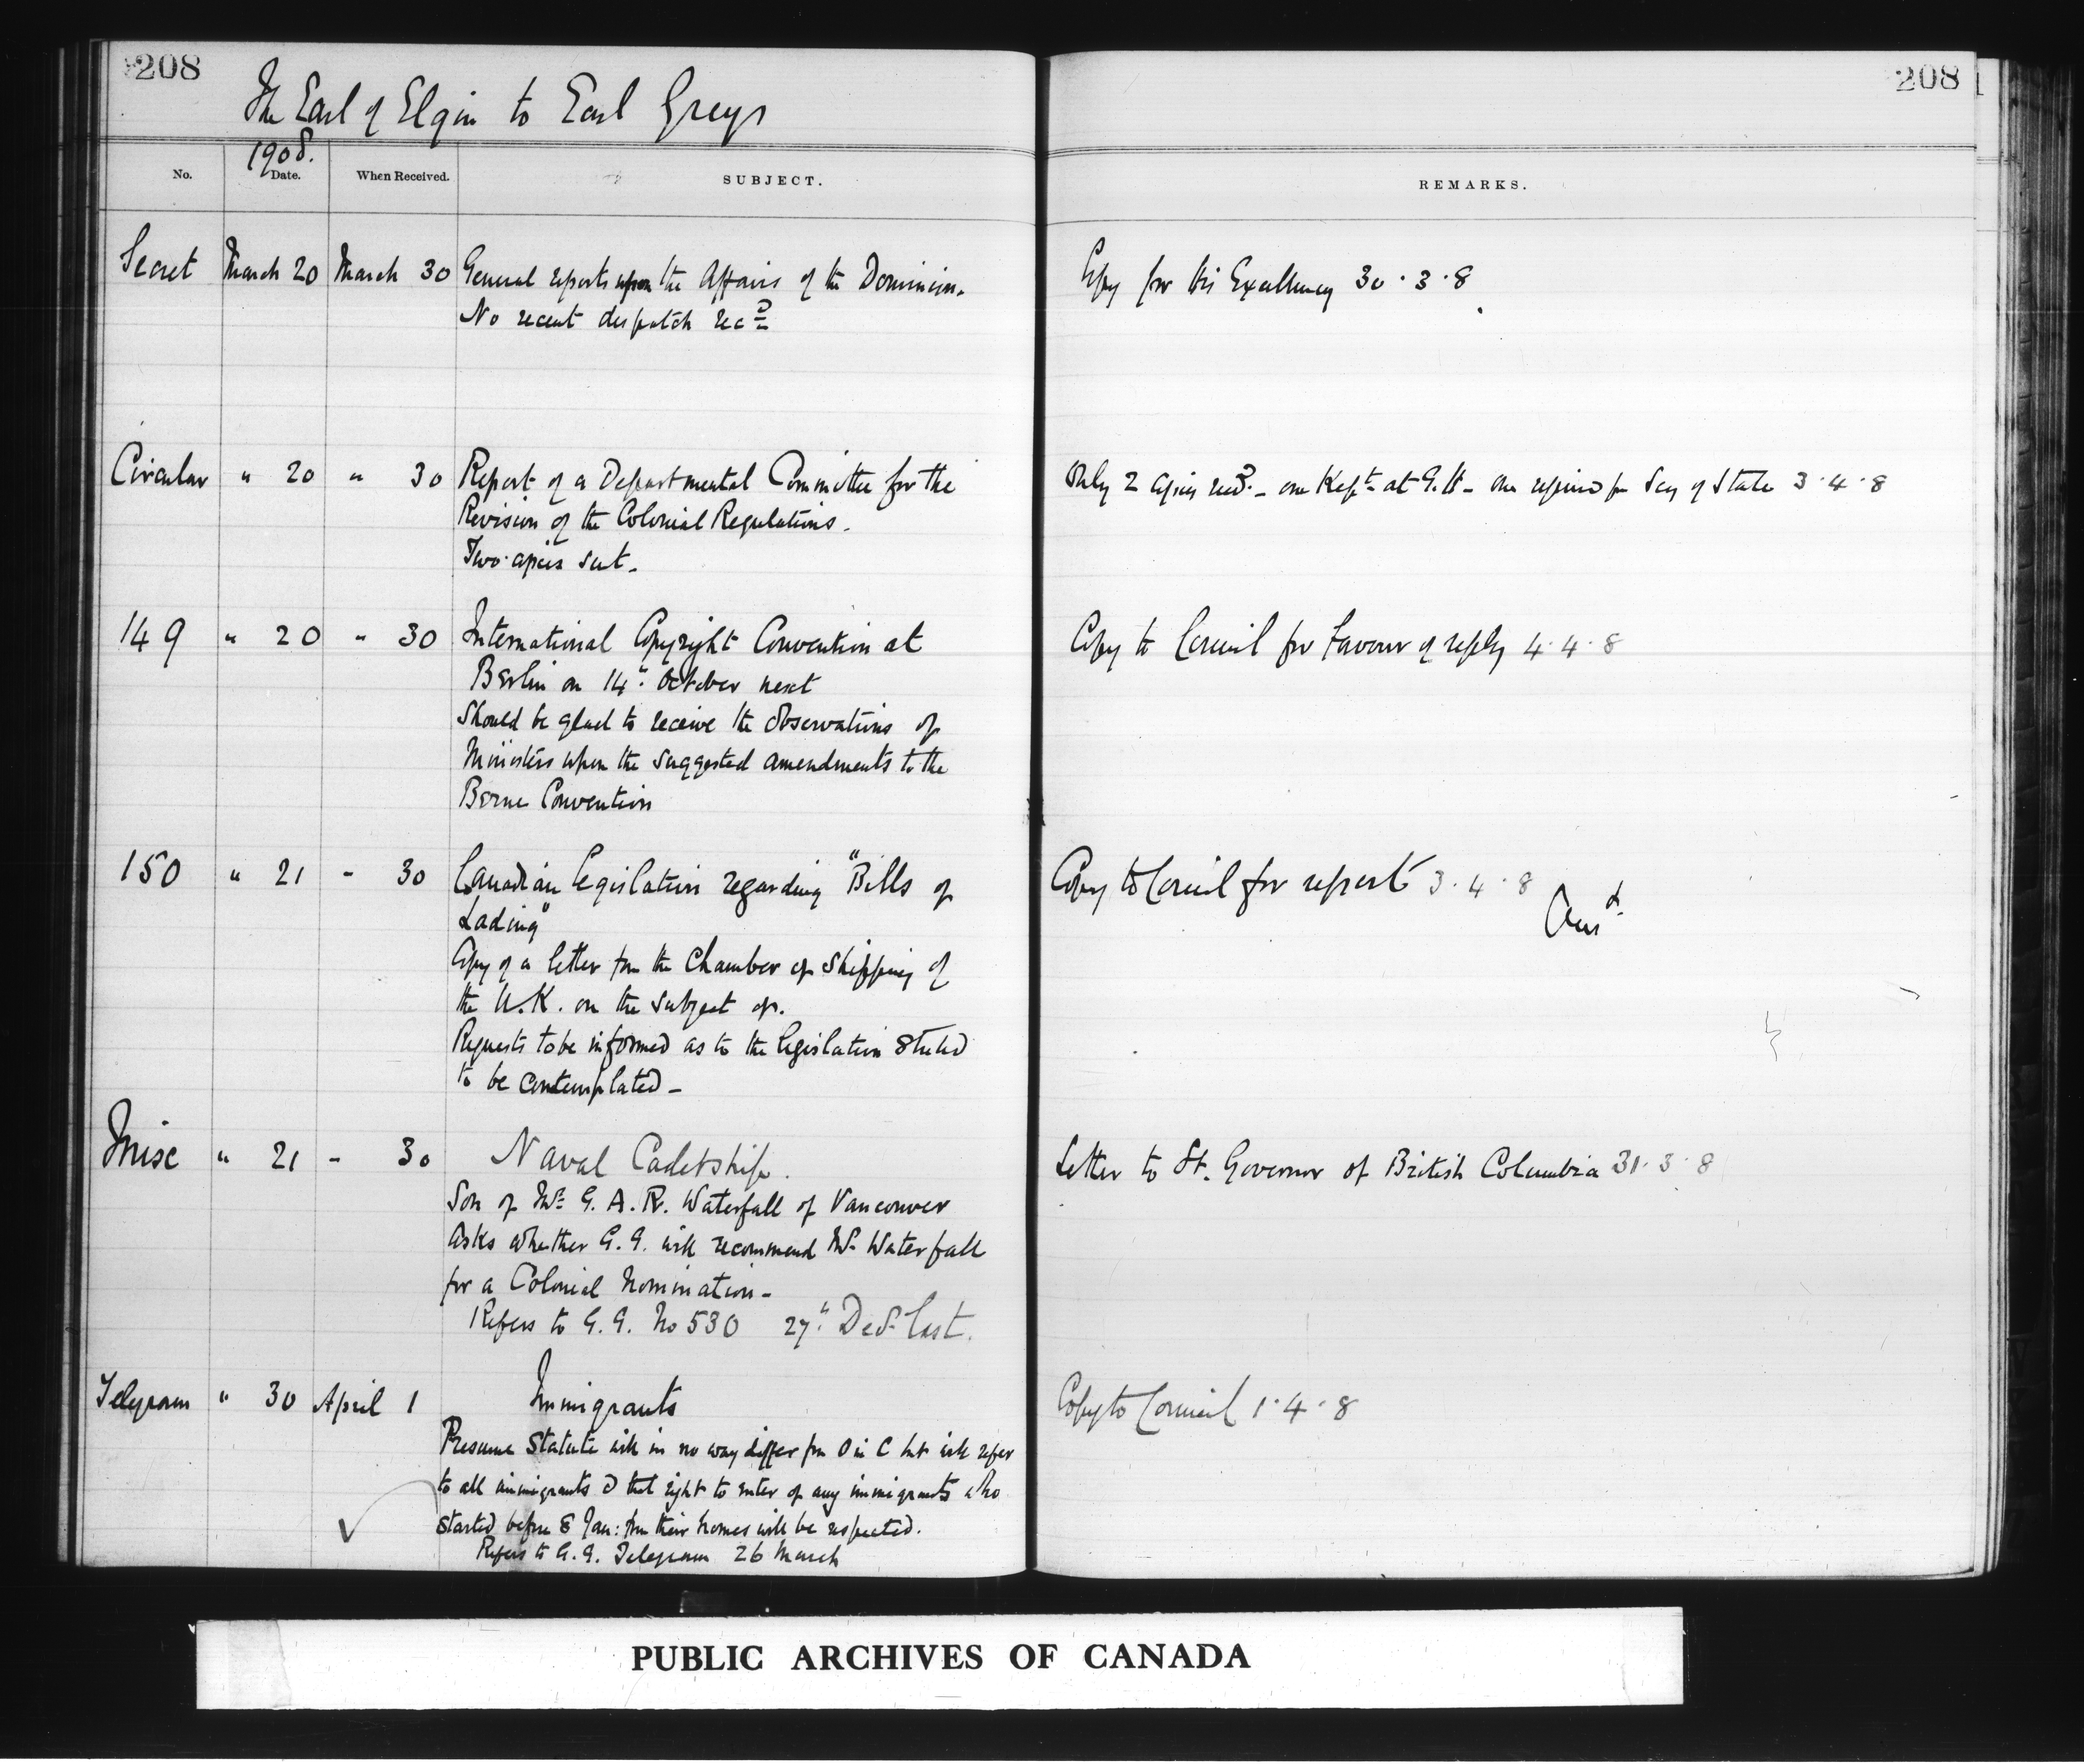 208
208
The Earl of Elgin to Earl Grey
1908.
No. Date. When Received. SUBJECT. REMARKS.
Secret March 20 March 30 General reports upon the Affairs of the Dominion. Copy for His Excellency 30.3.8
No recent despatch recd
Circular " 20 " 30 Report of a Departmental Committee for the Only 2 copies recd. - one Kept at G.H - one required for Secy of State 3.4.8
Revision of the Colonial Regulations.
Two copies sent -
149 " 20 " 30 International Copyright Convention at Copy to Council for favour of reply 4.4.8
Berlin on 14th October next
Should be glad to receive the observations of
Ministers upon the suggested amendments to the
Berne Convention
150 " 21 - 30 Canadian Legislation regarding "Bills of Copy to Council for report 3.4.8
Lading" Ansd.
Copy of a letter from the Chamber of Shipping of
the U.K. on the subject of.
Requests to be informed as to the legislation stated
to be contemplated -
Misc " 21 - 30 Naval Cadetship. Letter to Lt. Governor of British Columbia 31.3.8
Son of Mr G. A. R. Waterfall of Vancouver
Asks whether G.G. will recommend Mr Waterfall
for a Colonial Nomination -
Refers to G.G. No 530 27th Decr last.
Telegram " 30 April 1 Immigrants Copy to Council 1.4.8
Presume Statute will in no way differ from O in C but will refer
to all immigrants & that right to enter of any immigrants who
started before 8 Jan: from their homes will be respected.
Refers to G.G. Telegram 26 March
PUBLIC ARCHIVES OF CANADA